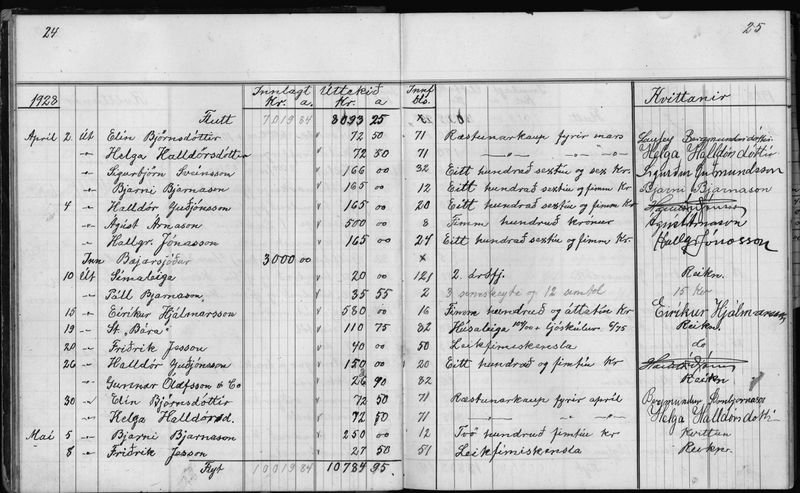 24
25
1923 Innlagt Kr. a. Úttekið Kr. a Innf bls. Kvittanir
Flutt 7019 84 3093 25
April 2. Út Elin Björnsdóttir 72 50 71 Ræstunarkaup fyrir mars
" Helga Halldórsdóttir 72 50 71 " " " Helga Halldórsdóttir
" Sigurbjörn Sveinsson 166 00 32 Eitt hundrað sextíu og sex Kr. Guðmundsson
" Bjarni Bjarnason 165 00 12 Eitt hundrað sextíu og fimm Kr Bjarni Bjarnason
4 " Halldór Guðjónsson 165 00 20 Eitt hundrað sextíu og fimm Kr
" Ágúst Árnason 500 00 8 Fimm hundruð krónur Ágúst Árnason
" Hallgr. Jónasson 165 00 24 Eitt hundrað sextíu og fimm Kr. Hallgr Jónasson
Inn Bæjarsjóður 3000 00 x
10 Út Símaleiga 20 00 121 2. ársfj. Reikn.
" Páll Bjarnason, 35 55 2 3 símskeyti og 12 símtöl 15 kr
15 " Eiríkur Hjálmarsson 580 00 16 Fimm hundruð og áttatíu Kr Eiríkur Hjálmarsson
19 " St. "Bára" 110 75 32 Húsaleiga 104/00 + Góskúlur 6/75 Reikn.
20 " Friðrik Jesson 40 00 50 Leikfimiskensla do
26 " Halldór Guðjónsson 150 00 20 Eitt hundrað og fimtíu Kr
" Gunnar Ólafsson & Co 26 90 32 Reikn
30 " Elin Björnsdóttir 72 50 71 Ræstunarkaup fyrir april
" Helga Halldórsd. 72 50 71 " " Helga Halldórsdóttir
Mai 5 " Bjarni Bjarnason 250 00 12 Tvö hundruð fimtíu kr Kvittan
8 " Friðrik Jesson 27 50 51 Leikfimiskensla Reikn.
Flyt 10019 84 10784 95